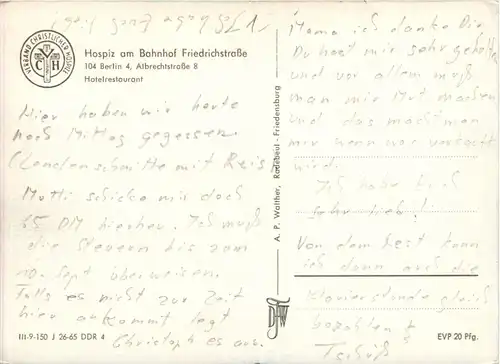 VERBAND CHRISTLICHER HOSPIZE
C H
Hospiz am Bahnhof Friedrichstraße
104 Berlin 4, Albrechtstraße 8
Hotelrestaurant
Hier haben wir heute
noch Mittag gegessen.
(Lendenschnitte mit Reis
Mutti schicke mir doch
65 DM hierher. Ich muß
die Steuern bis zum
10. Sept überweisen.
Falls es nicht zur Zeit
hier ankommt legt
Christoph es aus.
III-9-150 J 26-65 DDR 4
A. P. Walther, Radebeul-Friedensburg
Mama ich danke Dir
Du hast mir sehr geholfen
und vor allem muß
man mir Mut machen
und das macht man
mir wenn
wird.
Ich habe Euch
sehr lieb!
Von dem Rest kann
ich dann auch die
Klavierstunde gleich
bezahlen
Tschüß
EVP 20 Pfg.